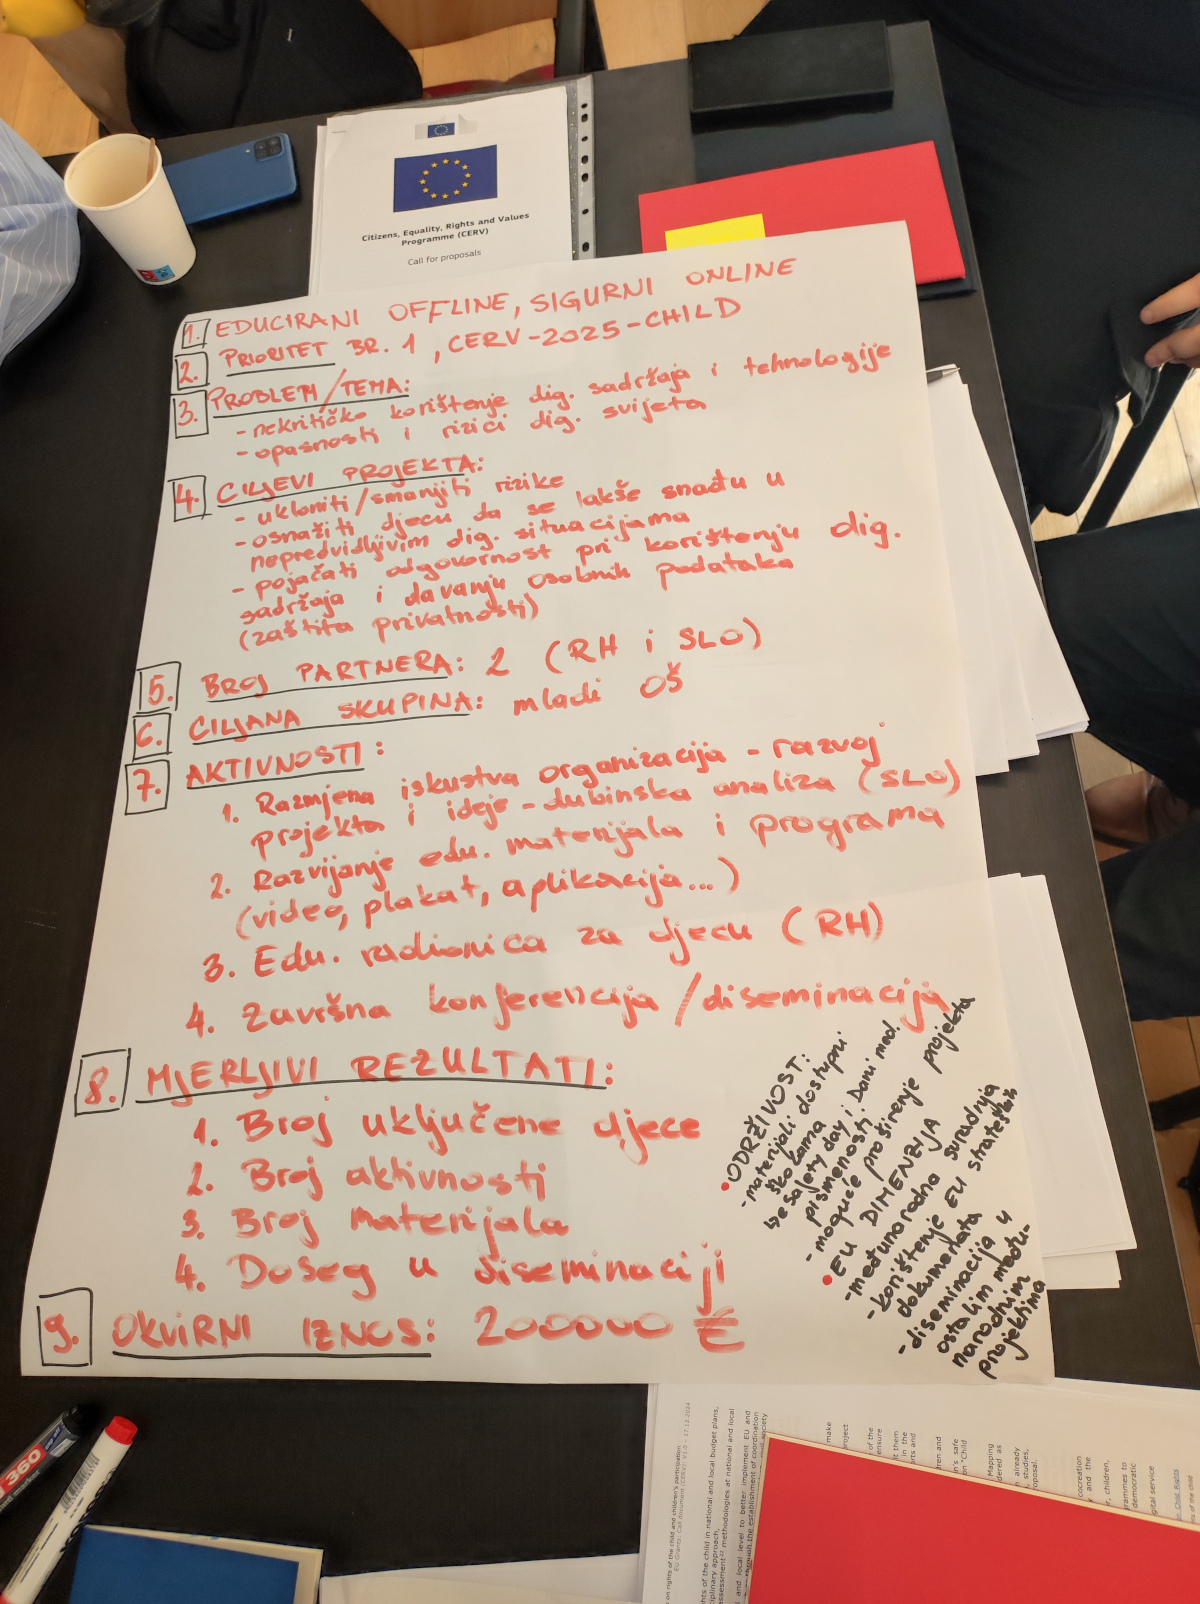 Citizens, Equality, Rights and Values
Programme (CERV)
Call for proposals
1. EDUCIRANI OFFLINE, SIGURNI ONLINE
2. PRIORITET BR. 1, CERV-2025-CHILD
3. PROBLEM/TEMA:
- nekritičko korištenje dig. sadržaja i tehnologije
- opasnosti i rizici dig. svijeta
4. CILJEVI PROJEKTA:
- ukloniti/smanjiti rizike
- osnažiti djecu da se lakše snađu u
nepredvidljivim dig. situacijama
- pojačati odgovornost pri korištenju dig.
sadržaja i davanju osobnih podataka
(zaštita privatnosti)
5. BROJ PARTNERA: 2 (RH i SLO)
6. CILJANA SKUPINA: mladi OŠ
7. AKTIVNOSTI:
1. Razmjena iskustva organizacija - razvoj
projekta i ideje - dubinska analiza (SLO)
2. Razvijanje edu. materijala i programa
(video, plakat, aplikacija...)
3. Edu. radionica za djecu (RH)
4. Završna konferencija/diseminacija
8. MJERLJIVI REZULTATI:
1. Broj uključene djece
2. Broj aktivnosti
3. Broj materijala
4. Doseg u diseminaciji
9. OKVIRNI IZNOS: 200000 €
• ODRŽIVOST:
- materijali dostupni
školama
safety day i Dani med.
pismenosti
- moguće proširenje projekta
• EU DIMENZIJA
- međunarodna suradnja
- korištenje EU strateških
dokumenata
- diseminacija u
ostalim među-
narodnim
projektima
360